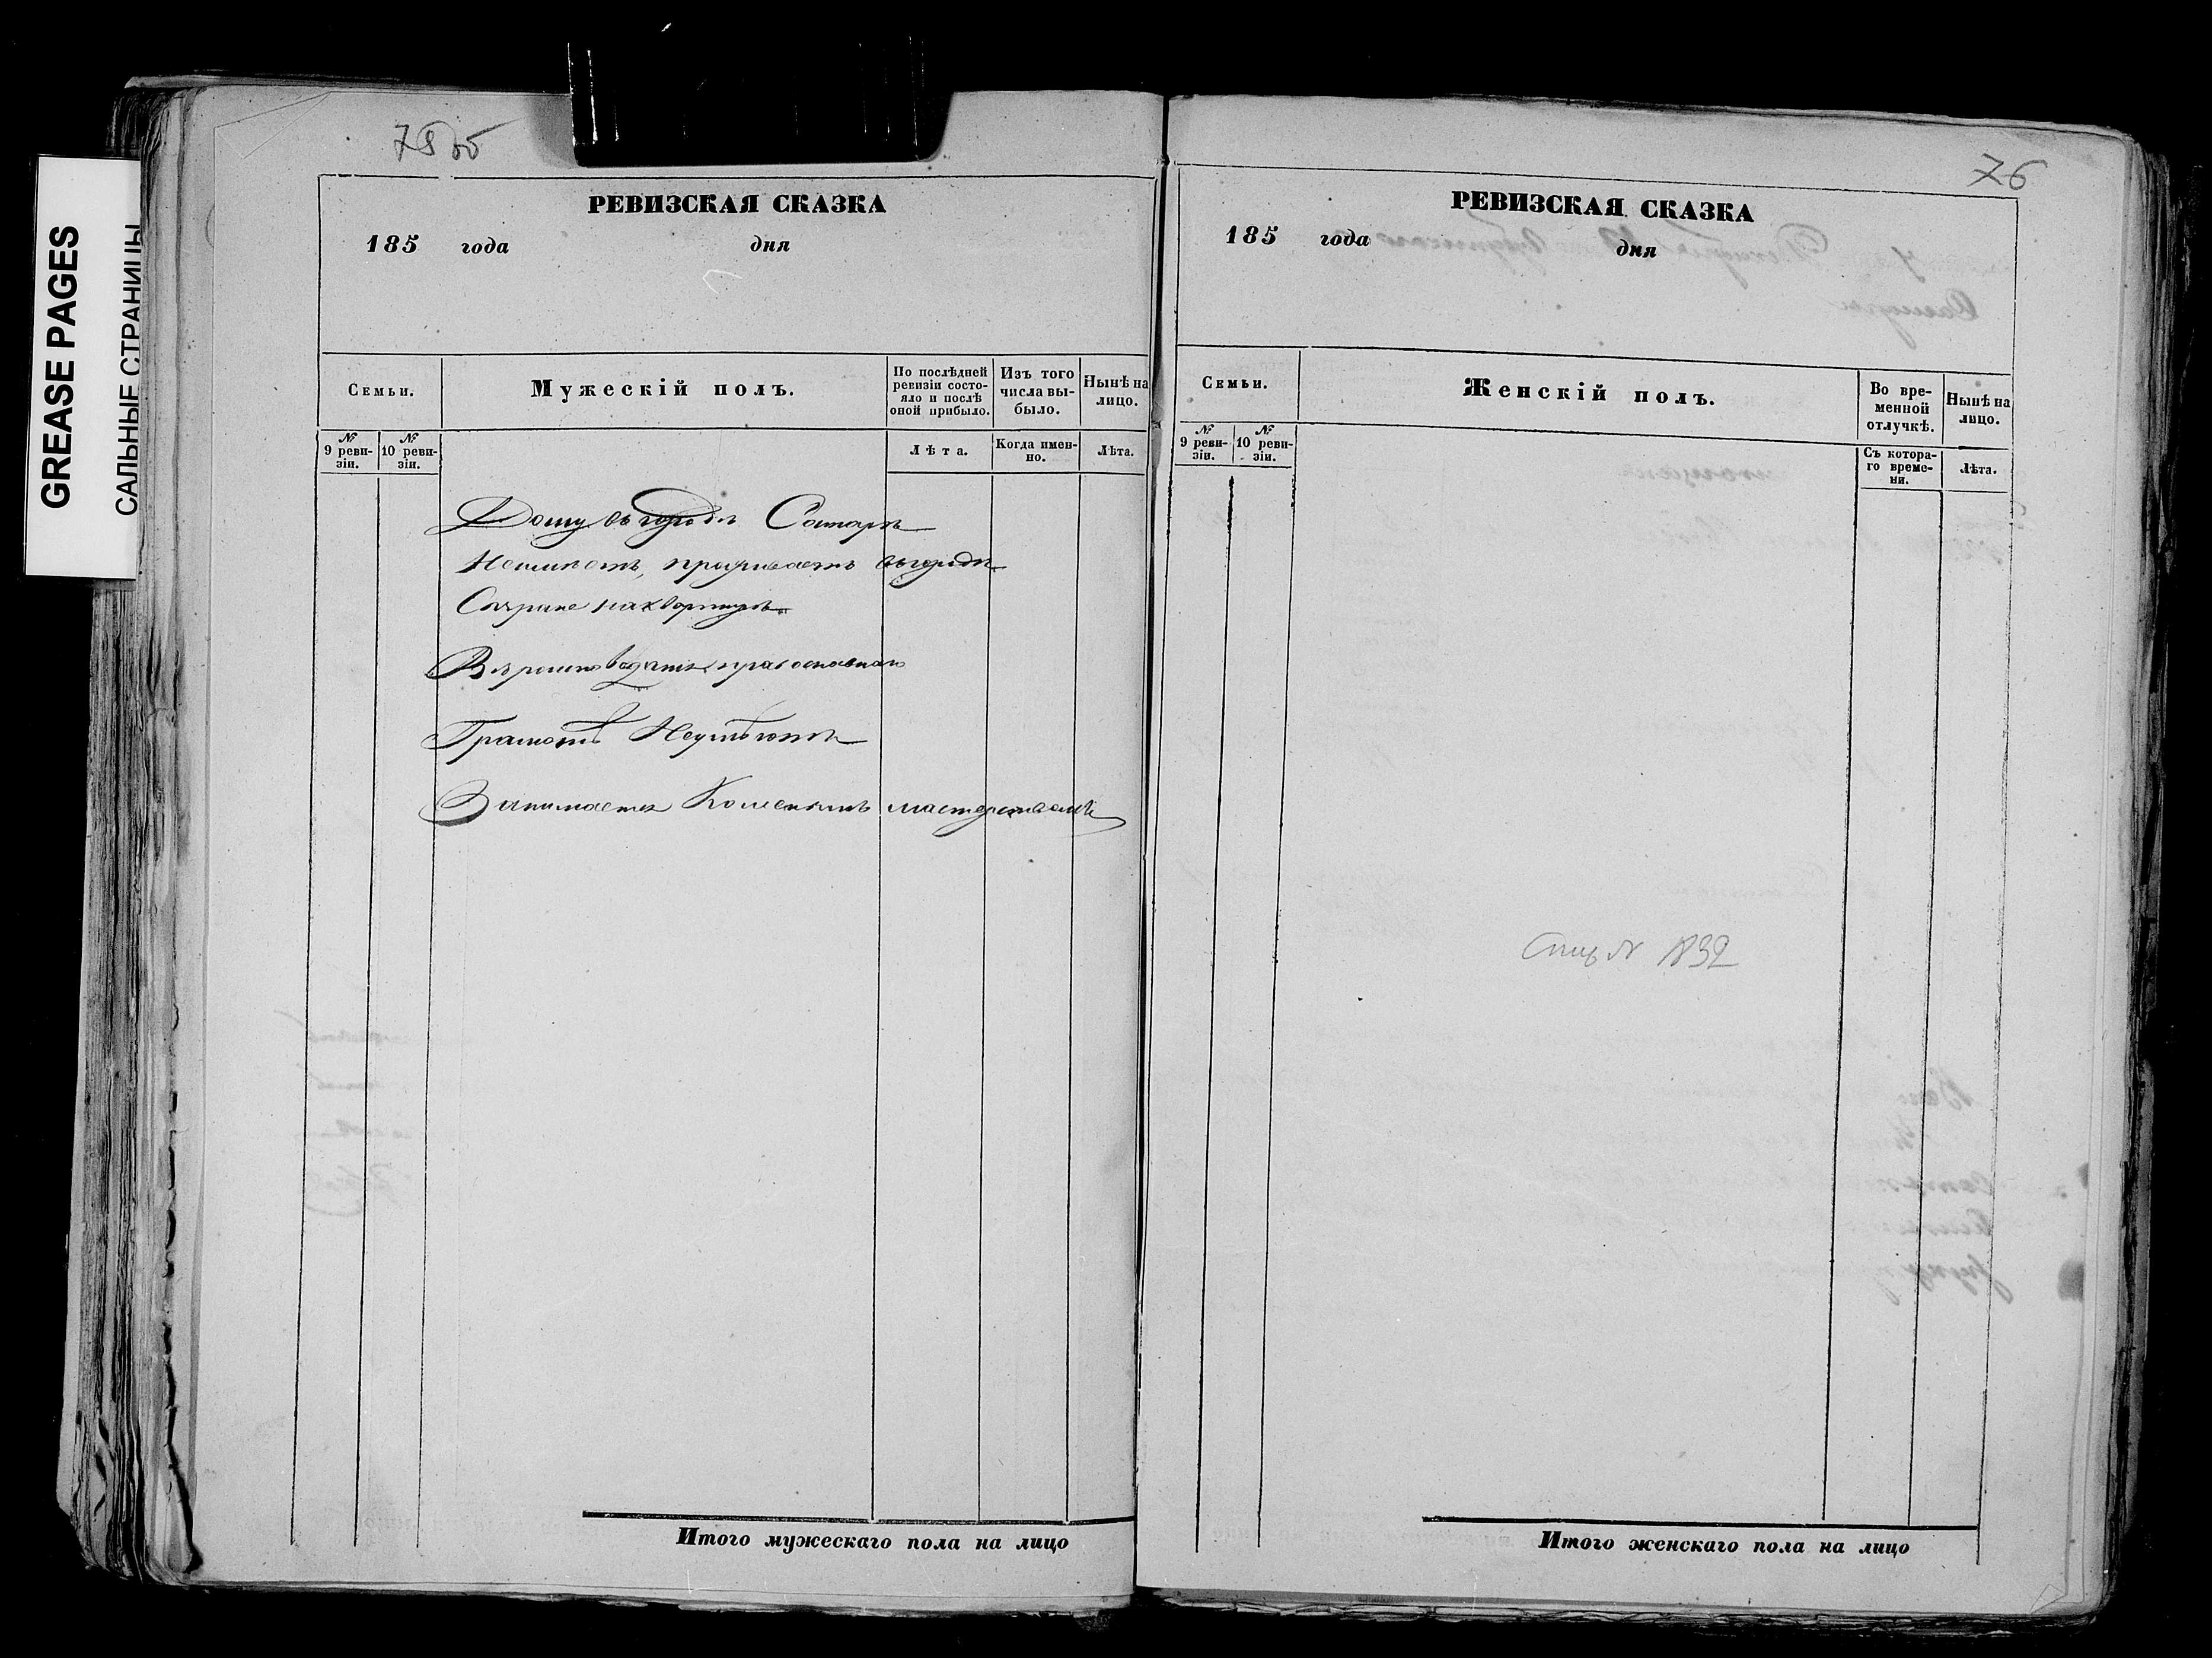 GREASE PAGES
САЛЬНЫЕ СТРАНИЦЫ
РЕВИЗСКАЯ СКАЗКА
185 года дня
Семьи.
Мужескій полъ.
По послѣдней ревизіи состояло и послѣ оной прибыло.
Изъ того числа выбыло.
Нынѣ на лицо.
№ 9 ревизіи.
№ 10 ревизіи.
Лѣта.
Когда именно.
Лѣта.
Дому въ городѣ Самарѣ
Неимѣетъ, проживаетъ въ городѣ
на квартирѣ
Вѣроисповеданія православнаго
Грамотѣ Неумѣютъ
Занимается мастерствомъ
Итого мужескаго пола на лицо
76
РЕВИЗСКАЯ СКАЗКА
185 года дня
Семьи.
Женскій полъ.
Во временной отлучкѣ.
Нынѣ на лицо.
№ 9 ревизіи.
№ 10 ревизіи.
Съ котораго времени.
Лѣта.
№ 1832
Итого женскаго пола на лицо